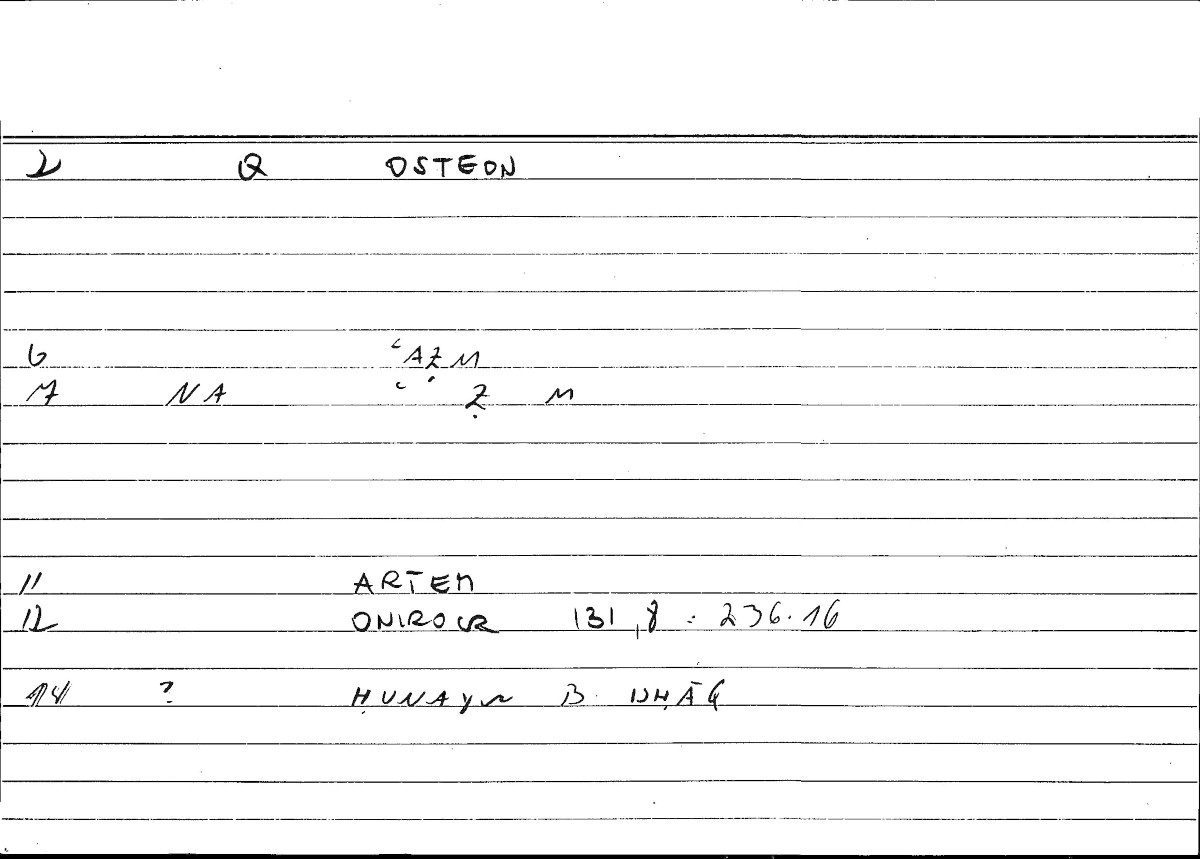 2 Q OSTEON
6 ʿAẒM
7 NA ʿ Ẓ M
11 ARTEM
12 ONIROCR 131,8 : 236.16
14 ? ḤUNAYN B. ISḤĀQ